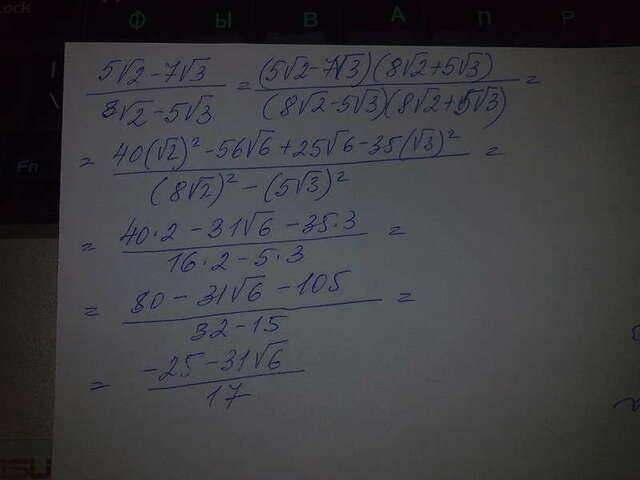 lock
Ф Ы В А П Р
Fn
(5√2-7√3)/(8√2-5√3) = (5√2-7√3)(8√2+5√3)/(8√2-5√3)(8√2+5√3) =
= (40(√2)²-56√6+25√6-35(√3)²)/((8√2)²-(5√3)²) =
= (40·2-31√6-35·3)/(16·2-5·3) =
= (80-31√6-105)/(32-15) =
= (-25-31√6)/17